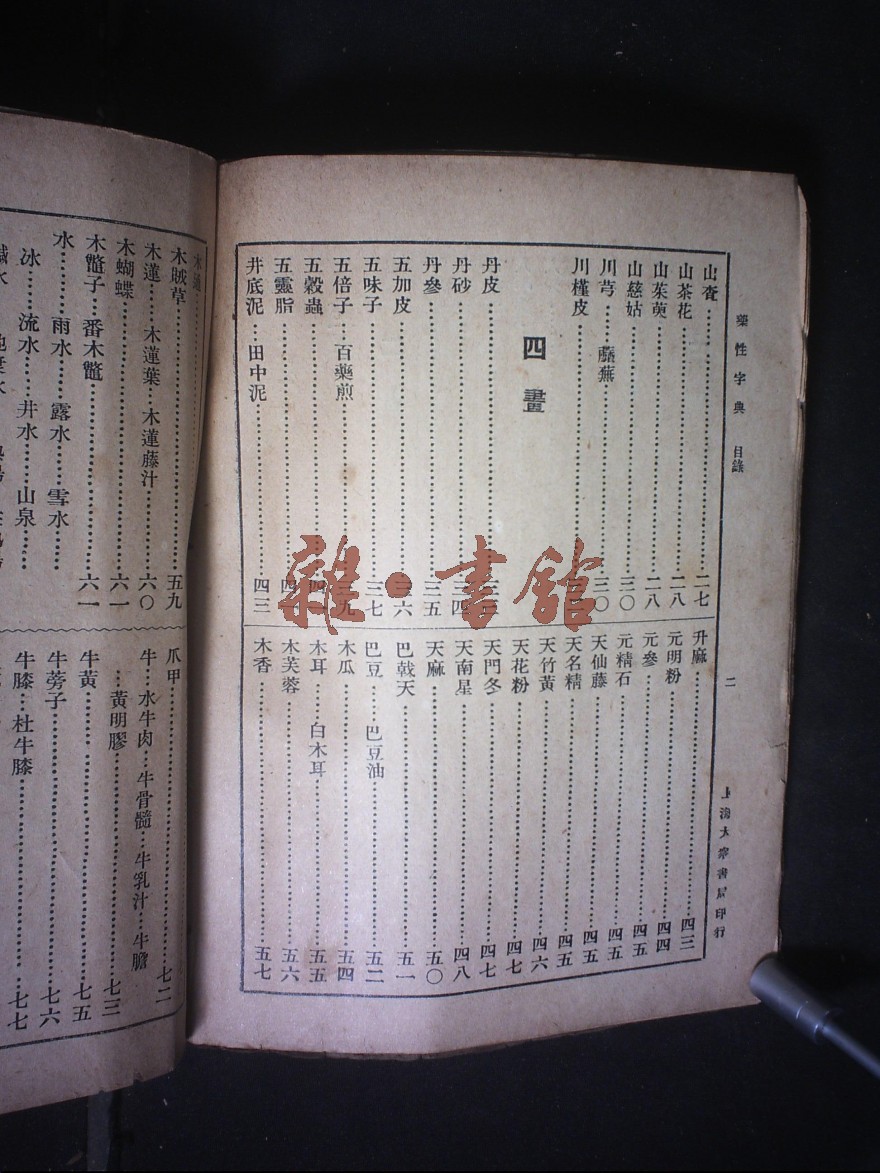 藥性字典 目錄
二
上海大眾書局印行
山查 二七
山茶花 二八
山茱萸 二八
山慈姑 三〇
川芎 蘼蕪 三〇
川槿皮
四畫
丹皮
丹砂 三四
丹參 三五
五加皮 三六
五味子 三七
五倍子 百藥煎 三九
五穀蟲
五靈脂
井底泥 田中泥 四三
升麻 四三
元明粉 四四
元參 四五
元精石 四五
天仙藤 四五
天名精 四五
天竹黃 四六
天花粉 四七
天門冬 四七
天南星 四八
天麻 五〇
巴戟天 五一
巴豆 巴豆油 五二
木瓜 五四
木耳 白木耳 五五
木芙蓉 五六
木香 五七
木賊草 五九
木蓮 木蓮葉 木蓮藤汁 六〇
木蝴蝶 六一
木鼈子 番木鼈 六一
水 雨水 露水 雪水
冰 流水 井水 山泉
爪甲 七二
牛 水牛肉 牛骨髓 牛乳汁 牛膽
黃明膠 七三
牛黃 七五
牛蒡子 七六
牛膝 杜牛膝 七七
雜·書館